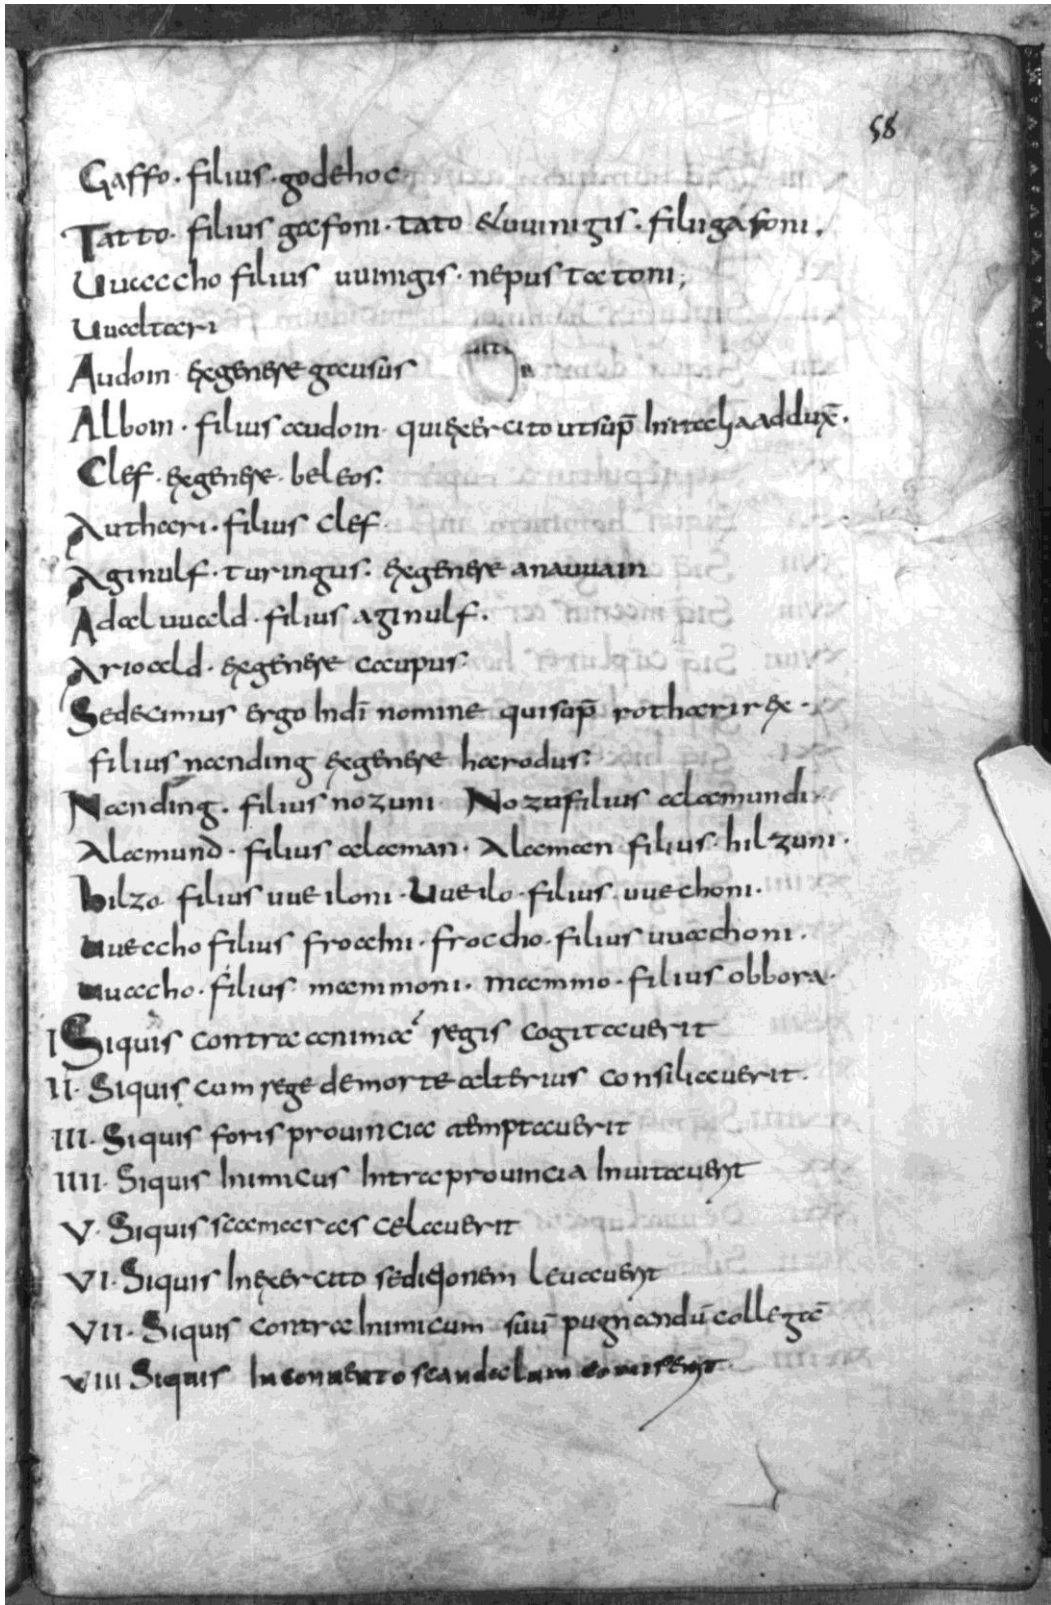 58
Gaffo · filius · godehoc
Tatto · filius gafoni · tato & uuinigis · filii gafoni ·
Uuaccho filius uuinigis · nepus tatoni ;
Uualtari
Audoin exgenere gausus
Alboin · filius audoin qui exercito ut sup̄ In itacha addux̄ ·
Clef · exgenere · beleos ·
Authari · filius clef ·
Aginulf · turingus · exgenere anauuain
Adaluuald · filius aginulf ·
Arioald · exgenere caupus ·
Sedecimus ergo Indī nomine qui sup̄ rothari rex ·
filius nanding exgenere harodus ·
Nanding · filius nozuni Nozu filius alamundi ·
Alamund · filius alaman · Alaman filius · hilzuni ·
hilzo filius uueiloni · Uueilo · filius · uuechoni ·
uueccho filius frochni · froccho · filius uuachoni ·
uuaccho · filius mammoni · mammo · filius obbora ·
I Siquis contra anima regis cogitauerit
II · Siquis cum rege demorte alterius consiliauerit ·
III · Siquis foris prouincia temptauerit
IIII · Siquis Inimicus Intra prouincia Inuitauerit
V · Siquis scamaras celauerit
VI · Siquis In exercito seditionem leuauerit
VII · Siquis contra Inimicum suū pugnandū collegā
VIII Siquis In conuento scandalum comiserit ·